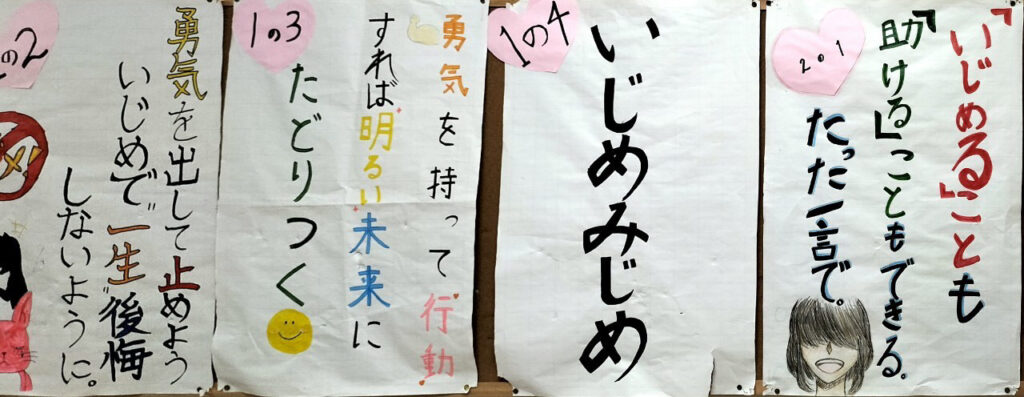 の2
勇気を出して止めよう
いじめで"一生"後悔
しないように。
1の3
勇気を持って行動
すれば明るい未来に
たどりつく
1の4
いじめみじめ
2の1
「いじめる」ことも
「助ける」こともできる。
たった一言で。